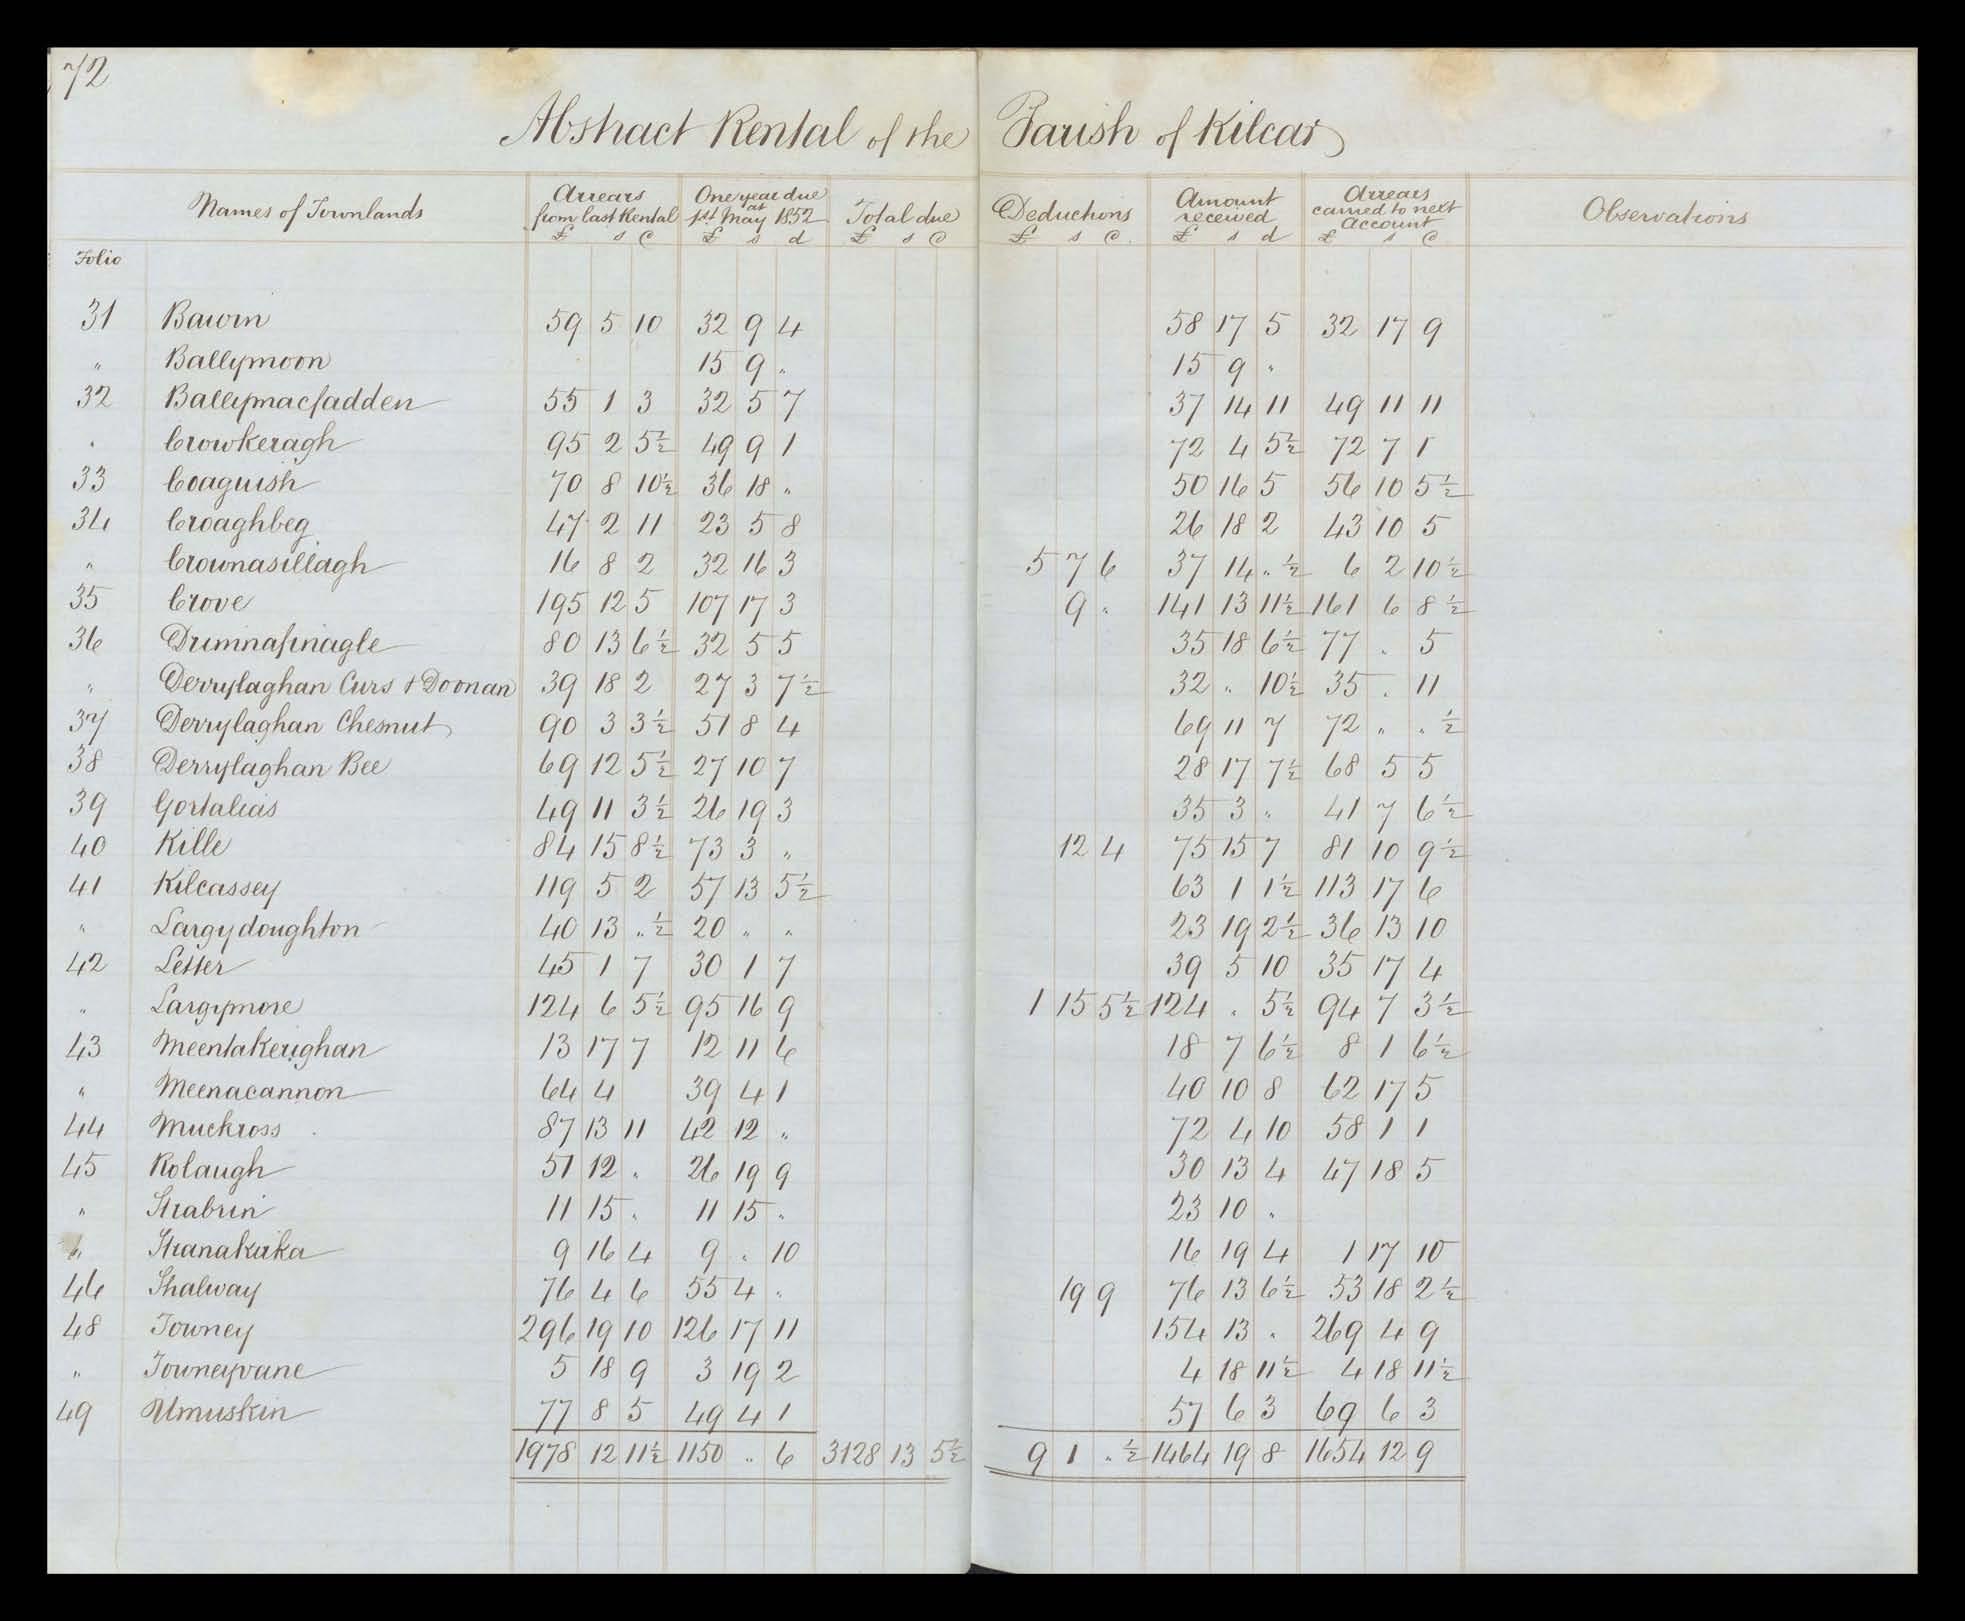 72
Abstract Rental of the Parish of Kilcar
Names of Townlands Arrears from last Rental £ s d One year due at 1st May 1852 £ s d Total due £ s d Deductions £ s d Amount received £ s d Arrears carried to next Account £ s d Observations
Folio
31 Bawin 59 5 10 32 9 4 58 17 5 32 17 9
" Ballymoon 15 9 " 15 9 "
32 Ballymacfadden 55 1 3 32 5 7 37 14 11 49 11 11
" Crowkeragh 95 2 5½ 49 9 1 72 4 5½ 72 7 1
33 Coaguish 70 8 10½ 36 18 " 50 16 5 56 10 5½
34 Croaghbeg 47 2 11 23 5 8 26 18 2 43 10 5
" Crownasillagh 16 8 2 32 16 3 5 7 6 37 14 " ½ 6 2 10½
35 Crove 195 12 5 107 17 3 9 " 141 13 11½ 161 6 8½
36 Drimnafinagle 80 13 6½ 32 5 5 35 18 6½ 77 " 5
" Derrylaghan Curs & Doonan 39 18 2 27 3 7½ 32 " 10½ 35 " 11
37 Derrylaghan Chesnut 90 3 3½ 51 8 4 69 11 7 72 " " ½
38 Derrylaghan Bee 69 12 5½ 27 10 7 28 17 7½ 68 5 5
39 Gortalias 49 11 3½ 26 19 3 35 3 " 41 7 6½
40 Kille 84 15 8½ 73 3 " 12 4 75 15 7 81 10 9½
41 Kilcassey 119 5 2 57 13 5½ 63 1 1½ 113 17 6
" Largydoughton 40 13 " ½ 20 " " 23 19 2½ 36 13 10
42 Letter 45 1 7 30 1 7 39 5 10 35 17 4
" Largymore 124 6 5½ 95 16 9 1 15 5½ 124 " 5½ 94 7 3½
43 Meentakerighan 13 17 7 12 11 6 18 7 6½ 8 1 6½
" Meenacannon 64 4 39 4 1 40 10 8 62 17 5
44 Muckross 87 13 11 42 12 " 72 4 10 58 1 1
45 Rolaugh 51 12 " 26 19 9 30 13 4 47 18 5
" Strabrin 11 15 " 11 15 " 23 10 "
" Stranakirka 9 16 4 9 " 10 16 19 4 1 17 10
46 Shalway 76 4 6 55 4 " 19 9 76 13 6½ 53 18 2½
48 Towney 296 19 10 126 17 11 154 13 " 269 4 9
" Towneyvane 5 18 9 3 19 2 4 18 11½ 4 18 11½
49 Umuskin 77 8 5 49 4 1 57 6 3 69 6 3
1978 12 11½ 1150 " 6 3128 13 5½ 9 1 " ½ 1464 19 8 1654 12 9